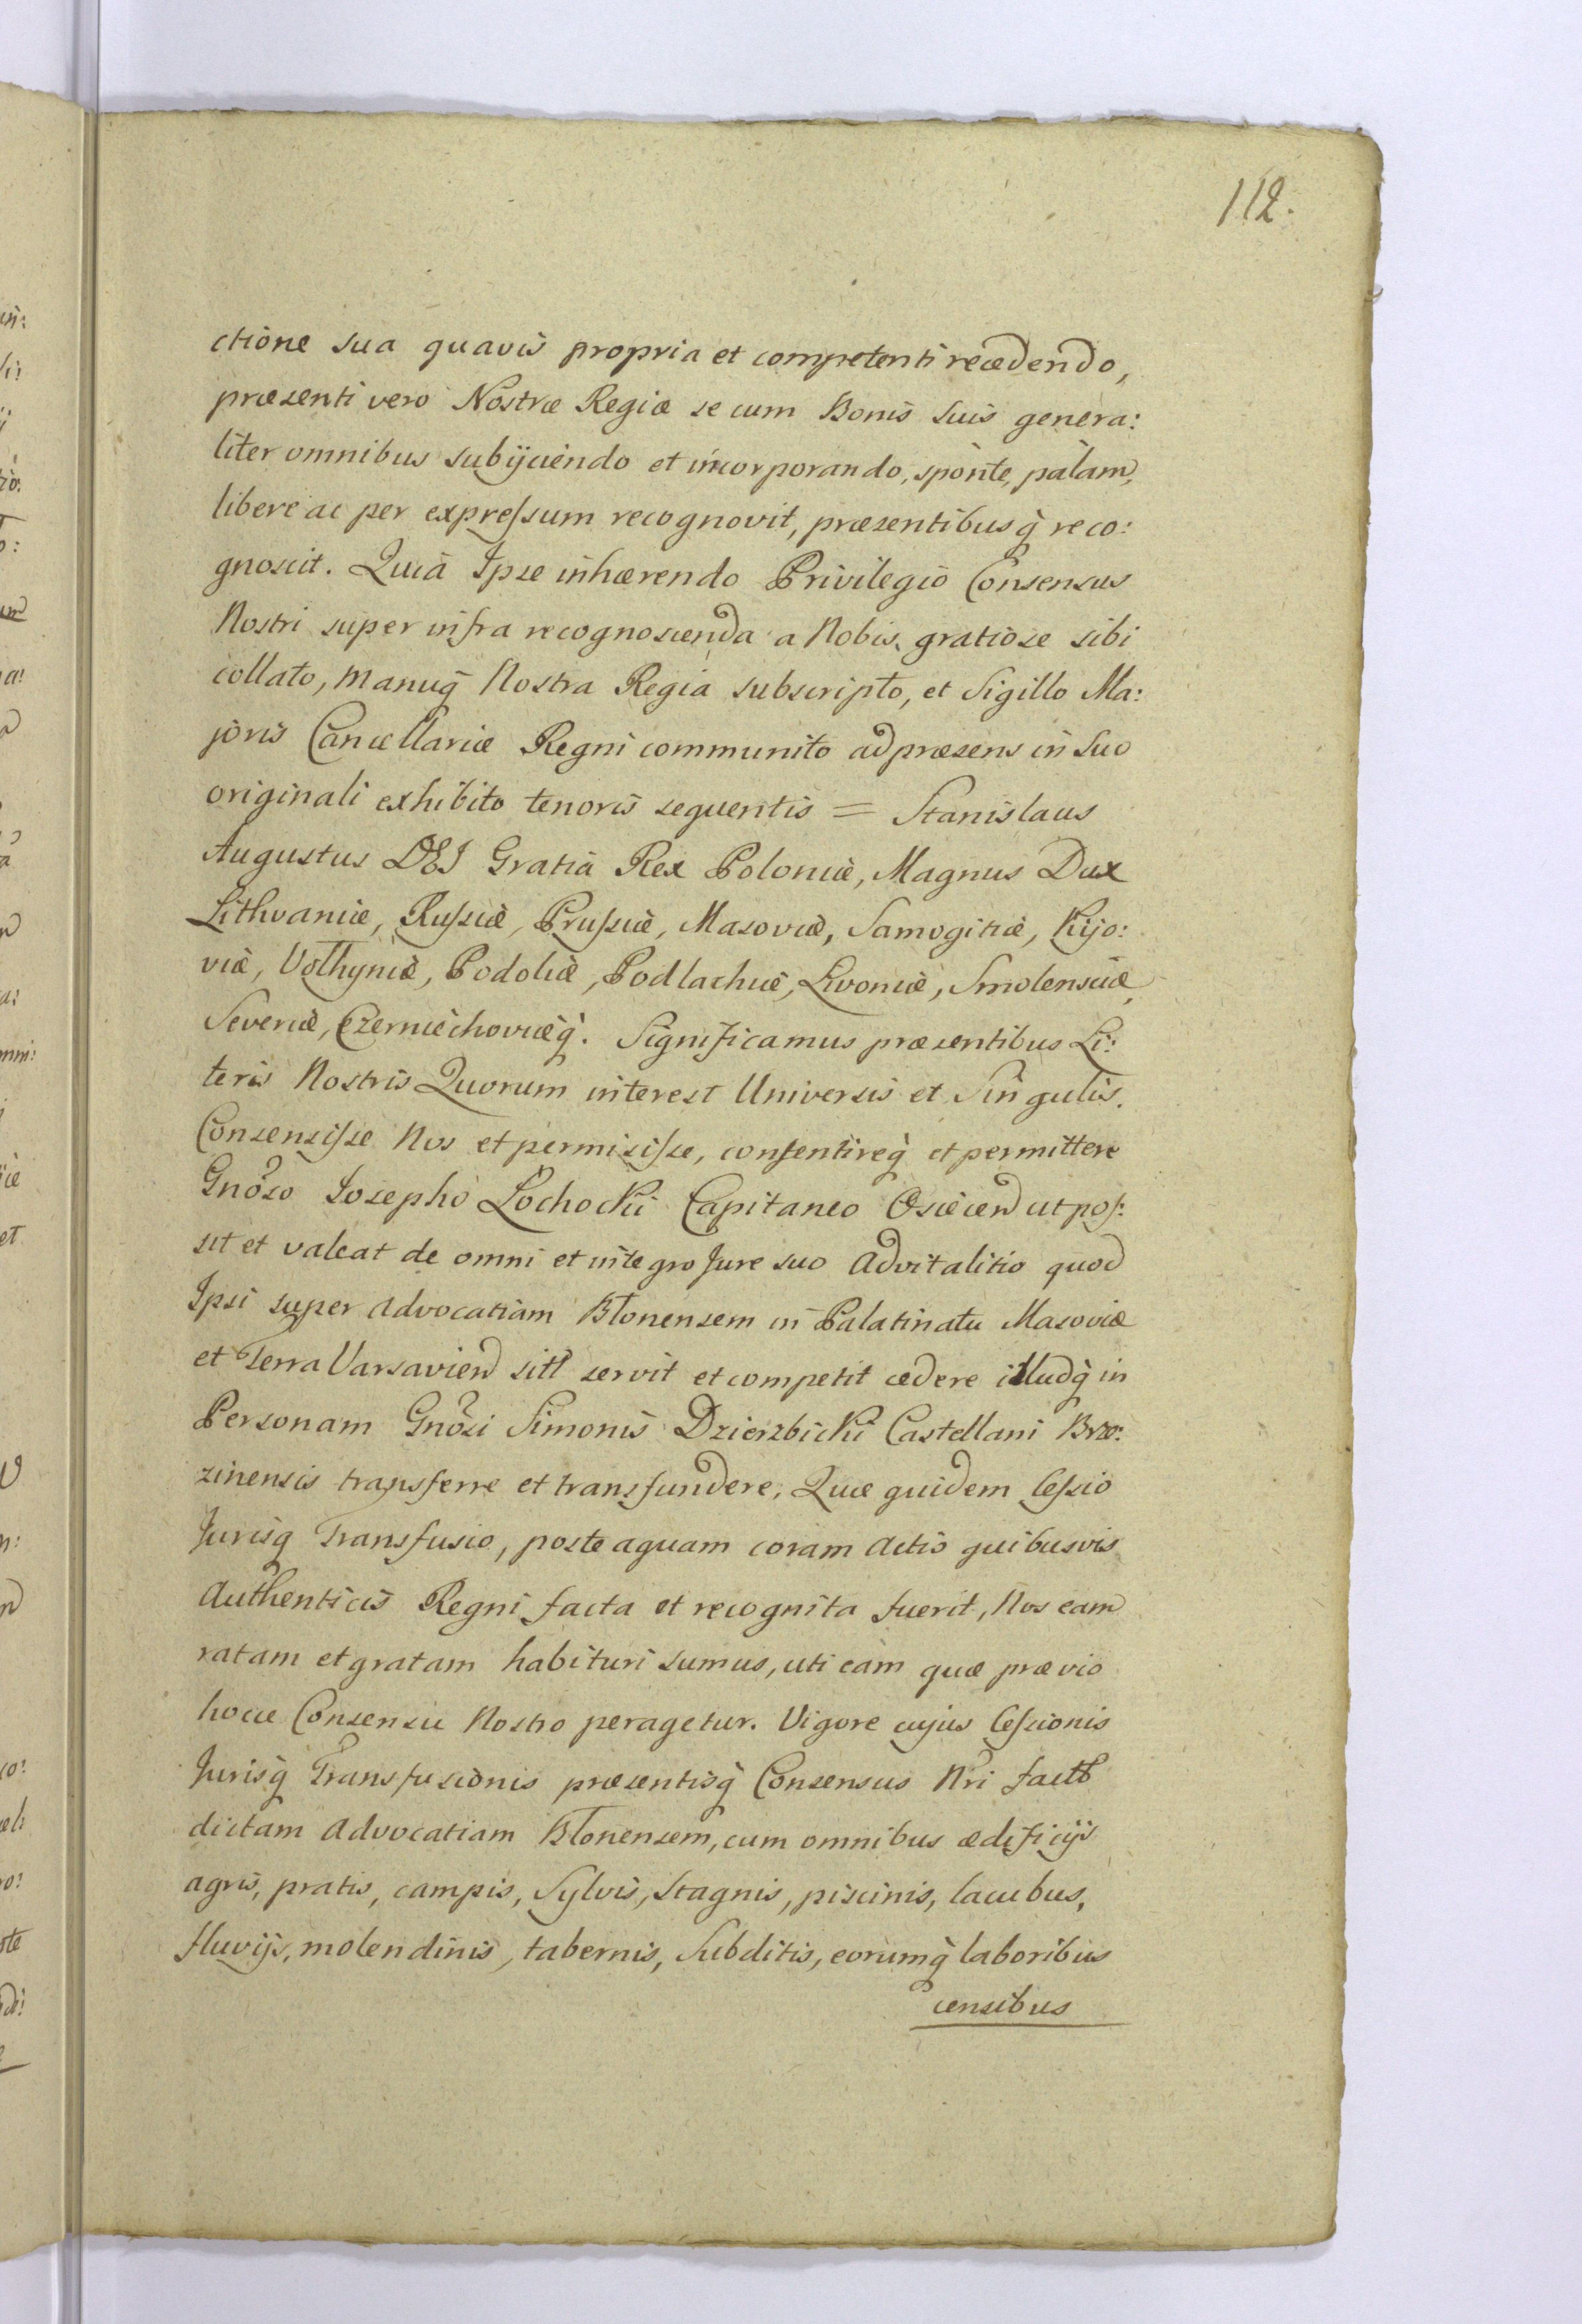 112.
ctione sua quavis propria et competenti recedendo,
præsenti vero Nostræ Regiæ se cum Bonis suis genera:
liter omnibus subijciendo et incorporando, sponte, palam,
libere ac per expreſsum recognovit, præsentibusq̀ reco:
gnoscit. Quià Ipse inhærendo Privilegio Consensus
Nostri super infra recognoscenda a Nobis gratiose sibi
collato, manuq̀ Nostra Regia subscripto, et Sigillo Ma:
joris Cancellariæ Regni communito ad præsens in suo
originali exhibito tenoris sequentis = Stanislaus
Augustus DEI Gratià Rex Poloniæ, Magnus Dux
Lithvaniæ, Ruſsiæ, Pruſsiæ, Masoviæ, Samogitiæ, Kijo:
viæ, Volhyniæ, Podoliæ, Podlachiæ, Livoniæ, Smolensciæ,
Severiæ, Czerniechoviæq̀. Significamus præsentibus Li:
teris Nostris Quorum interest Universis et Singulis.
Consensiſse Nos et permisiſse, conſentireq̀ et permittere
Gnõso Josepho Łochocki Capitaneo Osiecen̄ ut poſ:
sit et valeat de omni et integro Jure suo Advitalitio quod
Ipsi super Advocatiam Błonensem in Palatinatu Masoviæ
et Terra Varsavien̄ sitt̄ servit et competit cedere illudq̀ in
Personam Gnõsi Simonis Dzierzbicki Castellani Brze:
zinensis transferre et transfundere, Quæ quidem Ceſsio
Jurisq̀ Transfusio, posteaquam coram Actis quibusvis
Authenticis Regni facta et recognita fuerit, Nos eam
ratam et gratam habituri sumus, uti eam quæ prævio
hocce Consensu Nostro peragetur. Vigore cujus Ceſsionis
Jurisq̀ Transfusionis præsentisq̀ Consensus Nr̃i factt̄
dictam Advocatiam Błonensem, cum omnibus ædificijs
agris, pratis, campis, Sylvis, stagnis, piscinis, lacubus,
fluvijs, molendinis, tabernis, Subditis, eorumq̀ laboribus
censibus